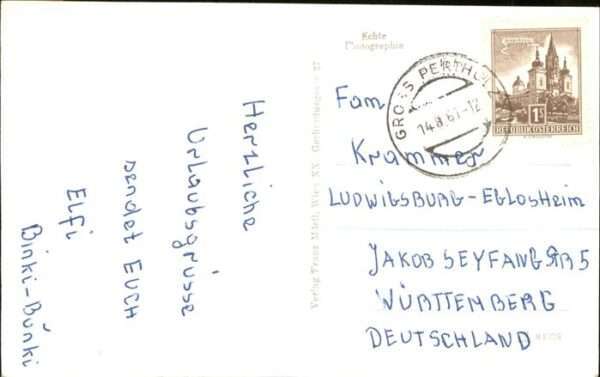 Herzliche
Urlaubsgrüsse
sendet Euch
Elfi
Binki-Bunki
Echte
Photographie
GROSS PERTHOLZ
14.8.61-12
1S
REPUBLIK ÖSTERREICH
Verlag Franz Mörtl, Wien XX
Fam
Krammer
LUDWIGSBURG-EGLOSHEIM
JAKOB SEYFANGSTR 5
WÜRTTEMBERG
DEUTSCHLAND